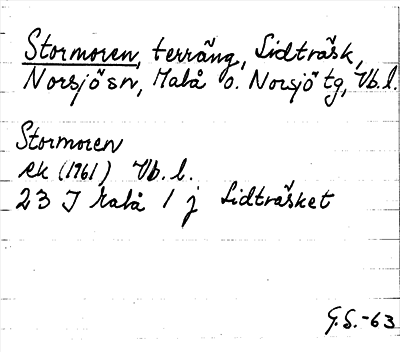 Stormoren, terräng, Lidträsk,
Norsjö sn, Malå o. Norsjö tg, Vb.l.
Stormoren
ek (1961) Vb.l.
23 J Malå 1 j Lidträsket
G.S.-63